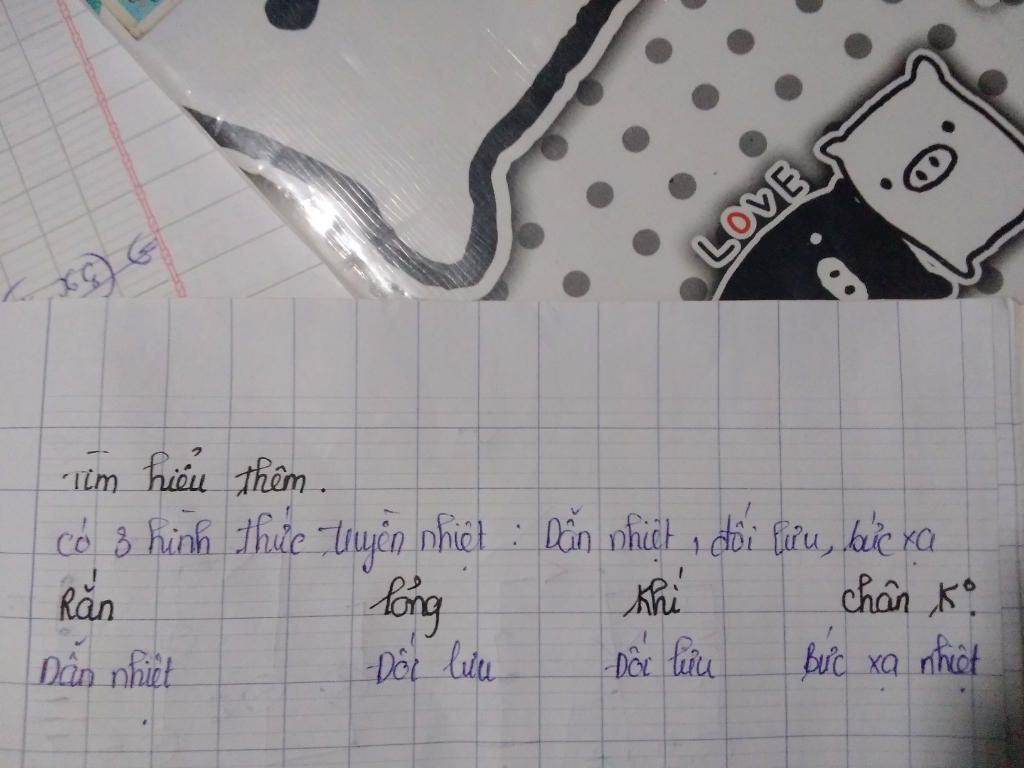 LOVE
Tìm hiểu thêm.
có 3 hình thức truyền nhiệt : Dẫn nhiệt, đối lưu, bức xạ
Rắn lỏng Khí chân K°.
Dẫn nhiệt Đối lưu Đối lưu Bức xạ nhiệt